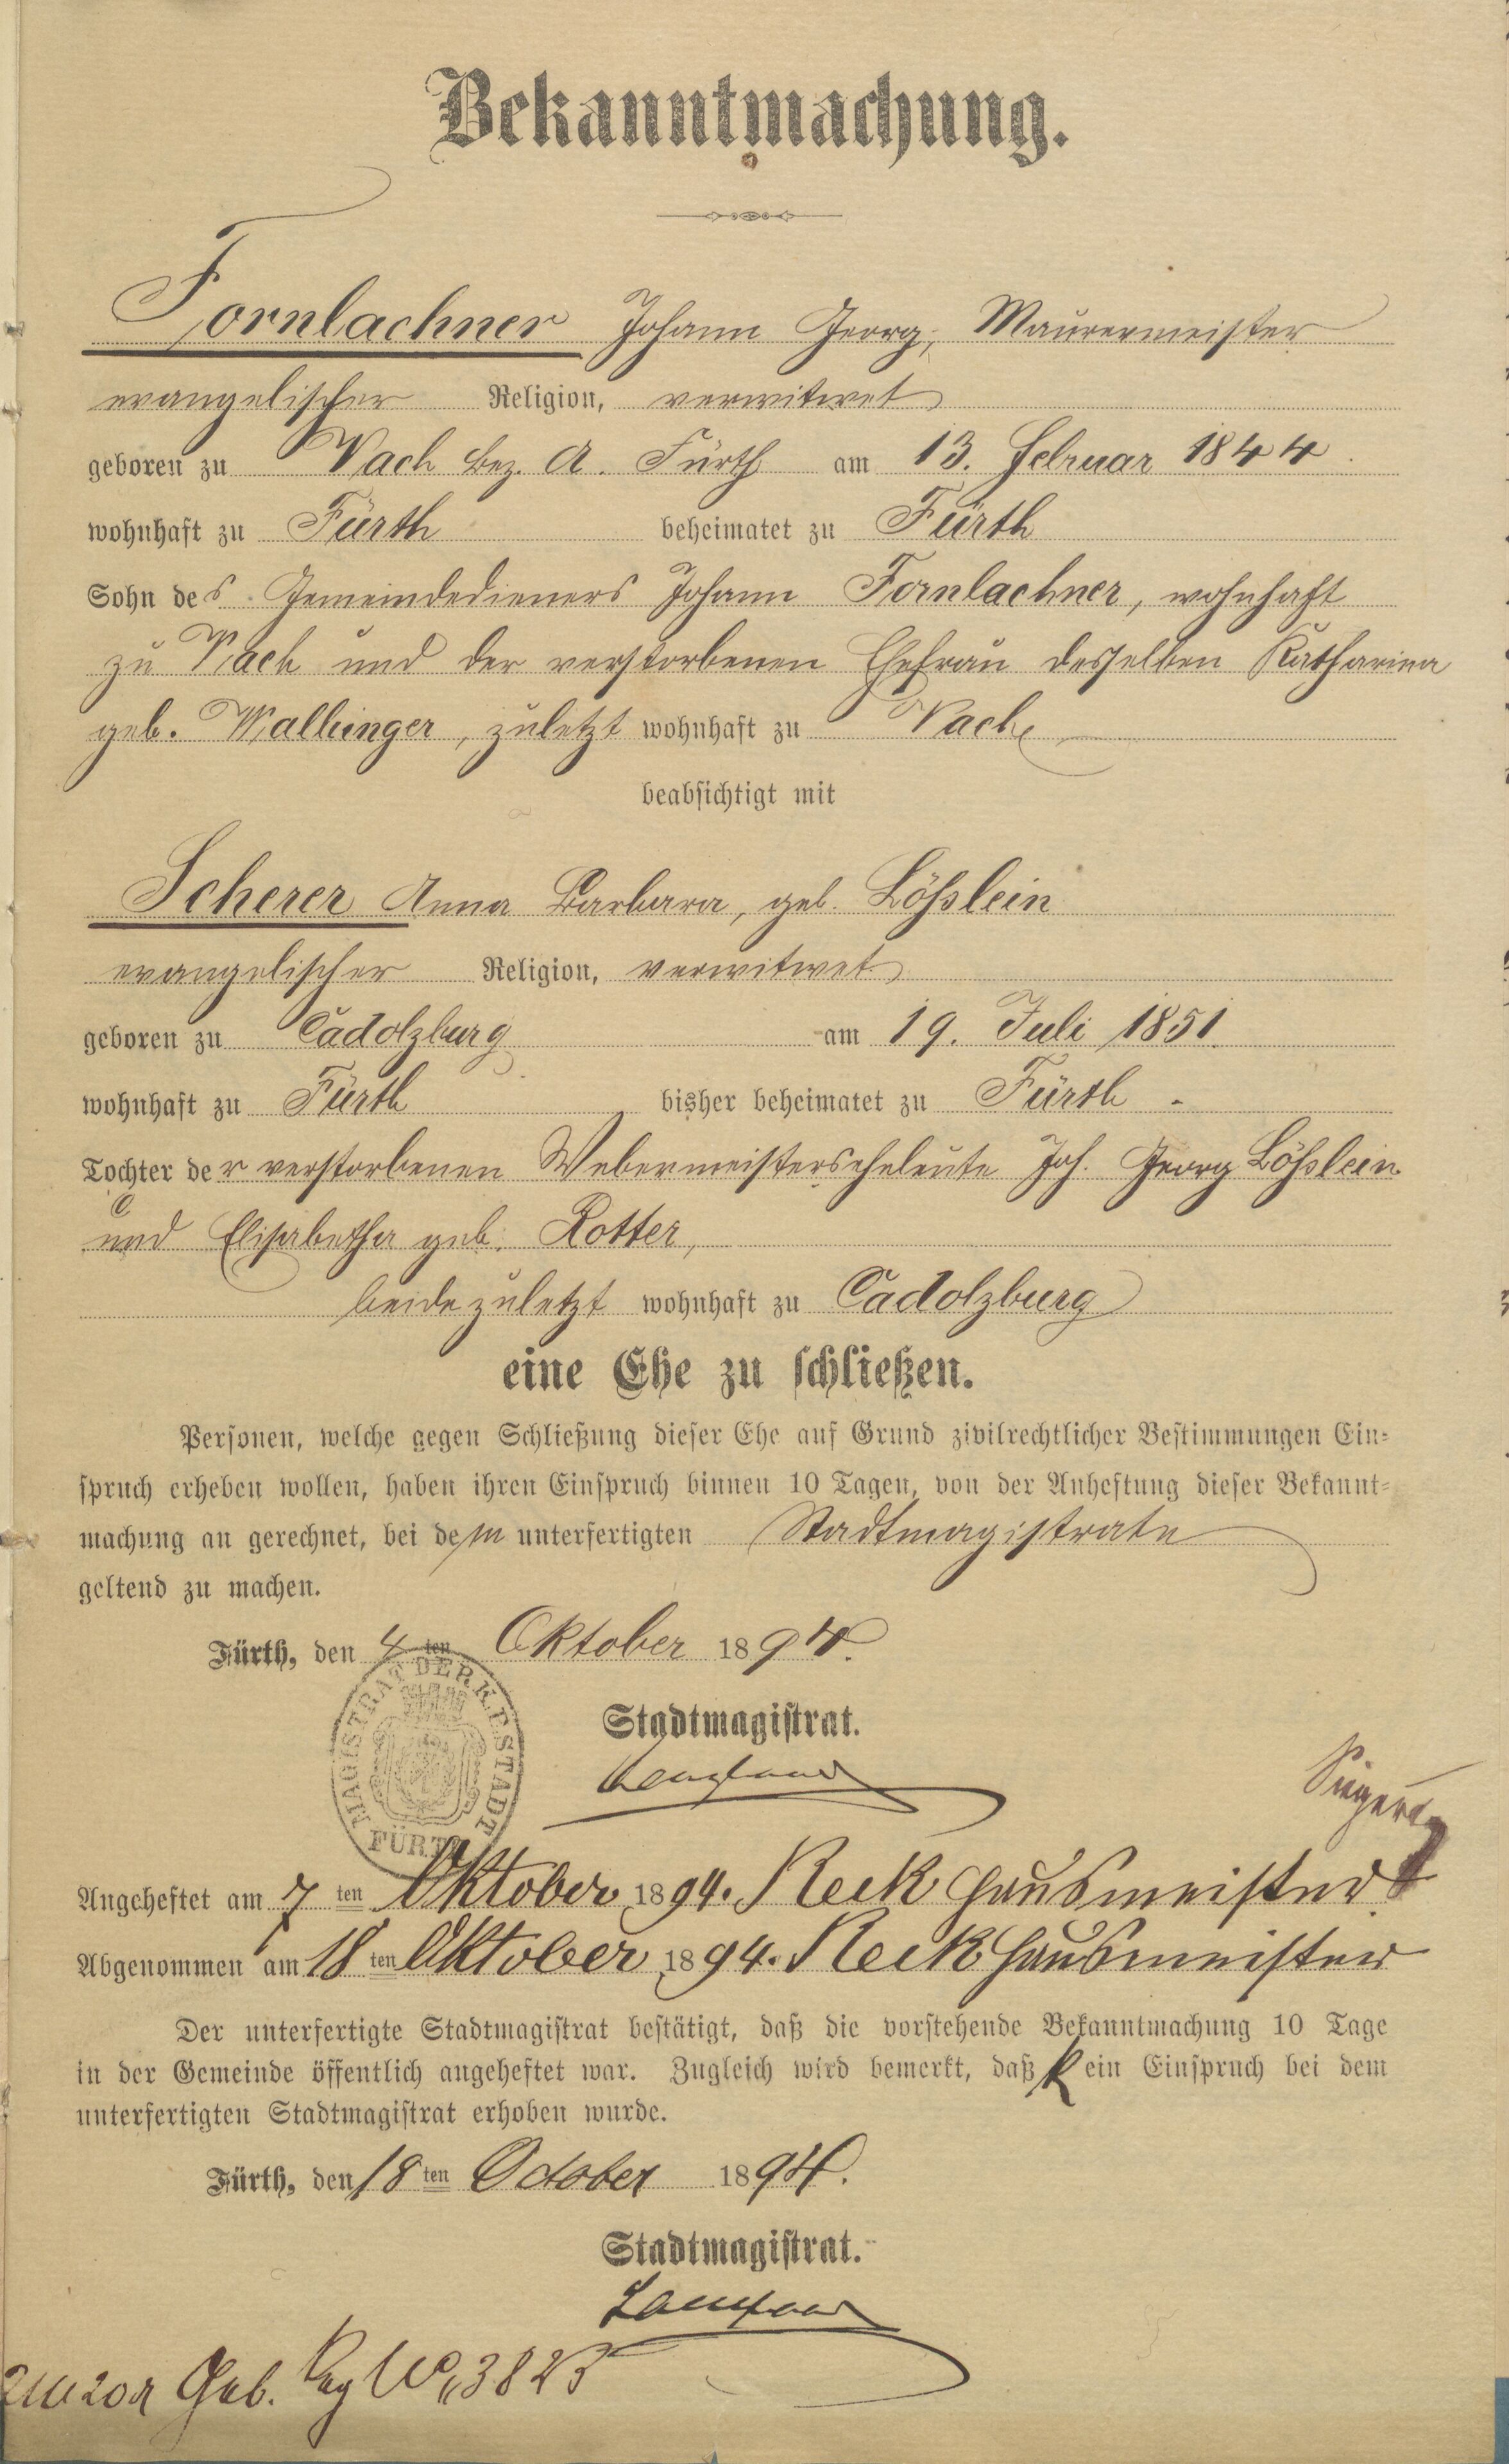 Bekanntmachung.
Fornbachner Johann Georg, Maurermeister
evangelischer Religion, verwitwet
geboren zu Vach Bez. A. Fürth am 13. Februar 1844.
wohnhaft zu Fürth beheimatet zu Fürth
Sohn des Gemeindedieners Johann Fornbachner, wohnhaft
zu Vach und der verstorbenen Ehefrau desselben Katharina
geb. Wallinger, zuletzt wohnhaft zu Vach
beabsichtigt mit
Scherer Anna Barbara, geb. Lößlein
evangelischer Religion, verwitwet
geboren zu Cadolzburg am 19. Juli 1851.
wohnhaft zu Fürth bisher beheimatet zu Fürth -
Tochter der verstorbenen Webermeisterseheleute Joh. Georg Lößlein
und Elisabetha geb. Rotter,
beide zuletzt wohnhaft zu Cadolzburg
eine Ehe zu schließen.
Personen, welche gegen Schließung dieser Ehe auf Grund zivilrechtlicher Bestimmungen Ein-
spruch erheben wollen, haben ihren Einspruch binnen 10 Tagen, von der Anheftung dieser Bekannt-
machung an gerechnet, bei dem unterfertigten Stadtmagistrate
geltend zu machen.
Fürth, den 4ten Oktober 1894.
MAGISTRAT DER K.B. STADT FÜRTH
Stadtmagistrat.
Angeheftet am 7ten Oktober 1894. Reck Hausmeister
Abgenommen am 18ten Oktober 1894. Reck Hausmeister
Der unterfertigte Stadtmagistrat bestätigt, daß die vorstehende Bekanntmachung 10 Tage
in der Gemeinde öffentlich angeheftet war. Zugleich wird bemerkt, daß kein Einspruch bei dem
unterfertigten Stadtmagistrat erhoben wurde.
Fürth, den 18ten October 1894.
Stadtmagistrat.
Geb. Reg No 3823